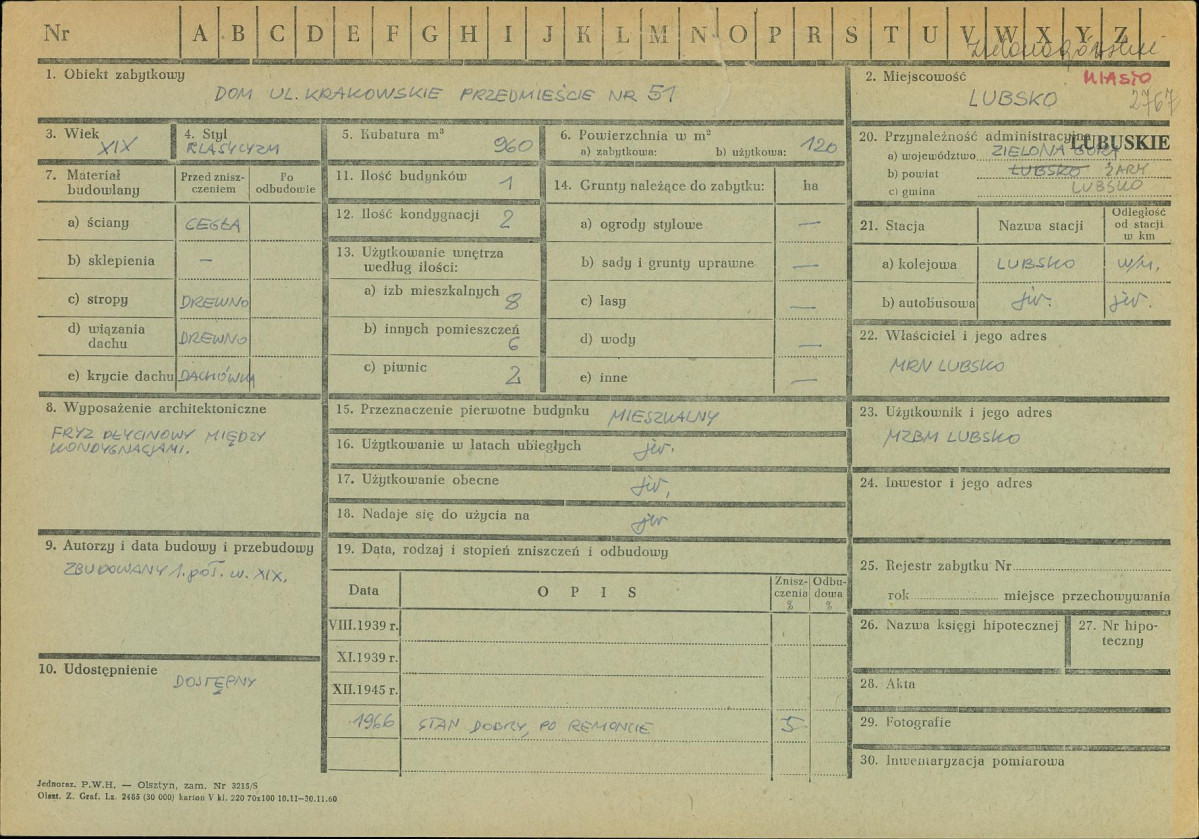 Nr A B C D E F G H I J K L M N O P R S T U V W X Y Z
1. Obiekt zabytkowy
DOM UL. KRAKOWSKIE PRZEDMIEŚCIE NR 51
2. Miejscowość
MIASTO
LUBSKO
2767
3. Wiek
XIX
4. Styl
KLASYCYZM
5. Kubatura m³
960
6. Powierzchnia w m²
a) zabytkowa: b) użytkowa: 120
20. Przynależność administracyjna
LUBUSKIE
a) województwo ZIELONA GÓRA
b) powiat LUBSKO ŻARY
c) gmina LUBSKO
7. Materiał budowlany
Przed znisz-
czeniem
Po
odbudowie
a) ściany CEGŁA
b) sklepienia —
c) stropy DREWNO
d) wiązania
dachu DREWNO
e) krycie dachu DACHÓWKA
11. Ilość budynków 1
12. Ilość kondygnacji 2
13. Użytkowanie wnętrza
według ilości:
a) izb mieszkalnych 8
b) innych pomieszczeń
6
c) piwnic 2
14. Grunty należące do zabytku: ha
a) ogrody stylowe —
b) sady i grunty uprawne —
c) lasy —
d) wody —
e) inne —
21. Stacja Nazwa stacji
Odległość
od stacji
w km
a) kolejowa LUBSKO w/m.
b) autobusowa jw. jw.
22. Właściciel i jego adres
MRN LUBSKO
8. Wyposażenie architektoniczne
FRYZ PŁYCINOWY MIĘDZY
KONDYGNACJAMI.
15. Przeznaczenie pierwotne budynku MIESZKALNY
16. Użytkowanie w latach ubiegłych jw.
17. Użytkowanie obecne jw.
18. Nadaje się do użycia na jw
23. Użytkownik i jego adres
MZBM LUBSKO
24. Inwestor i jego adres
9. Autorzy i data budowy i przebudowy
ZBUDOWANY 1. poł. w. XIX.
19. Data, rodzaj i stopień zniszczeń i odbudowy
Data O P I S
Znisz-
czenia
%
Odbu-
dowa
%
VIII.1939 r.
XI.1939 r.
XII.1945 r.
1966 STAN DOBRY, PO REMONCIE 5
25. Rejestr zabytku Nr
rok miejsce przechowywania
26. Nazwa księgi hipotecznej
27. Nr hipo-
teczny
10. Udostępnienie
DOSTĘPNY
28. Akta
29. Fotografie
30. Inwentaryzacja pomiarowa
Jednoraz. P.W.H. — Olsztyn, zam. Nr 3215/S
Olszt. Z. Graf. Lz. 2465 (30 000) karton V kl. 220 70x100 10.11—30.11.60